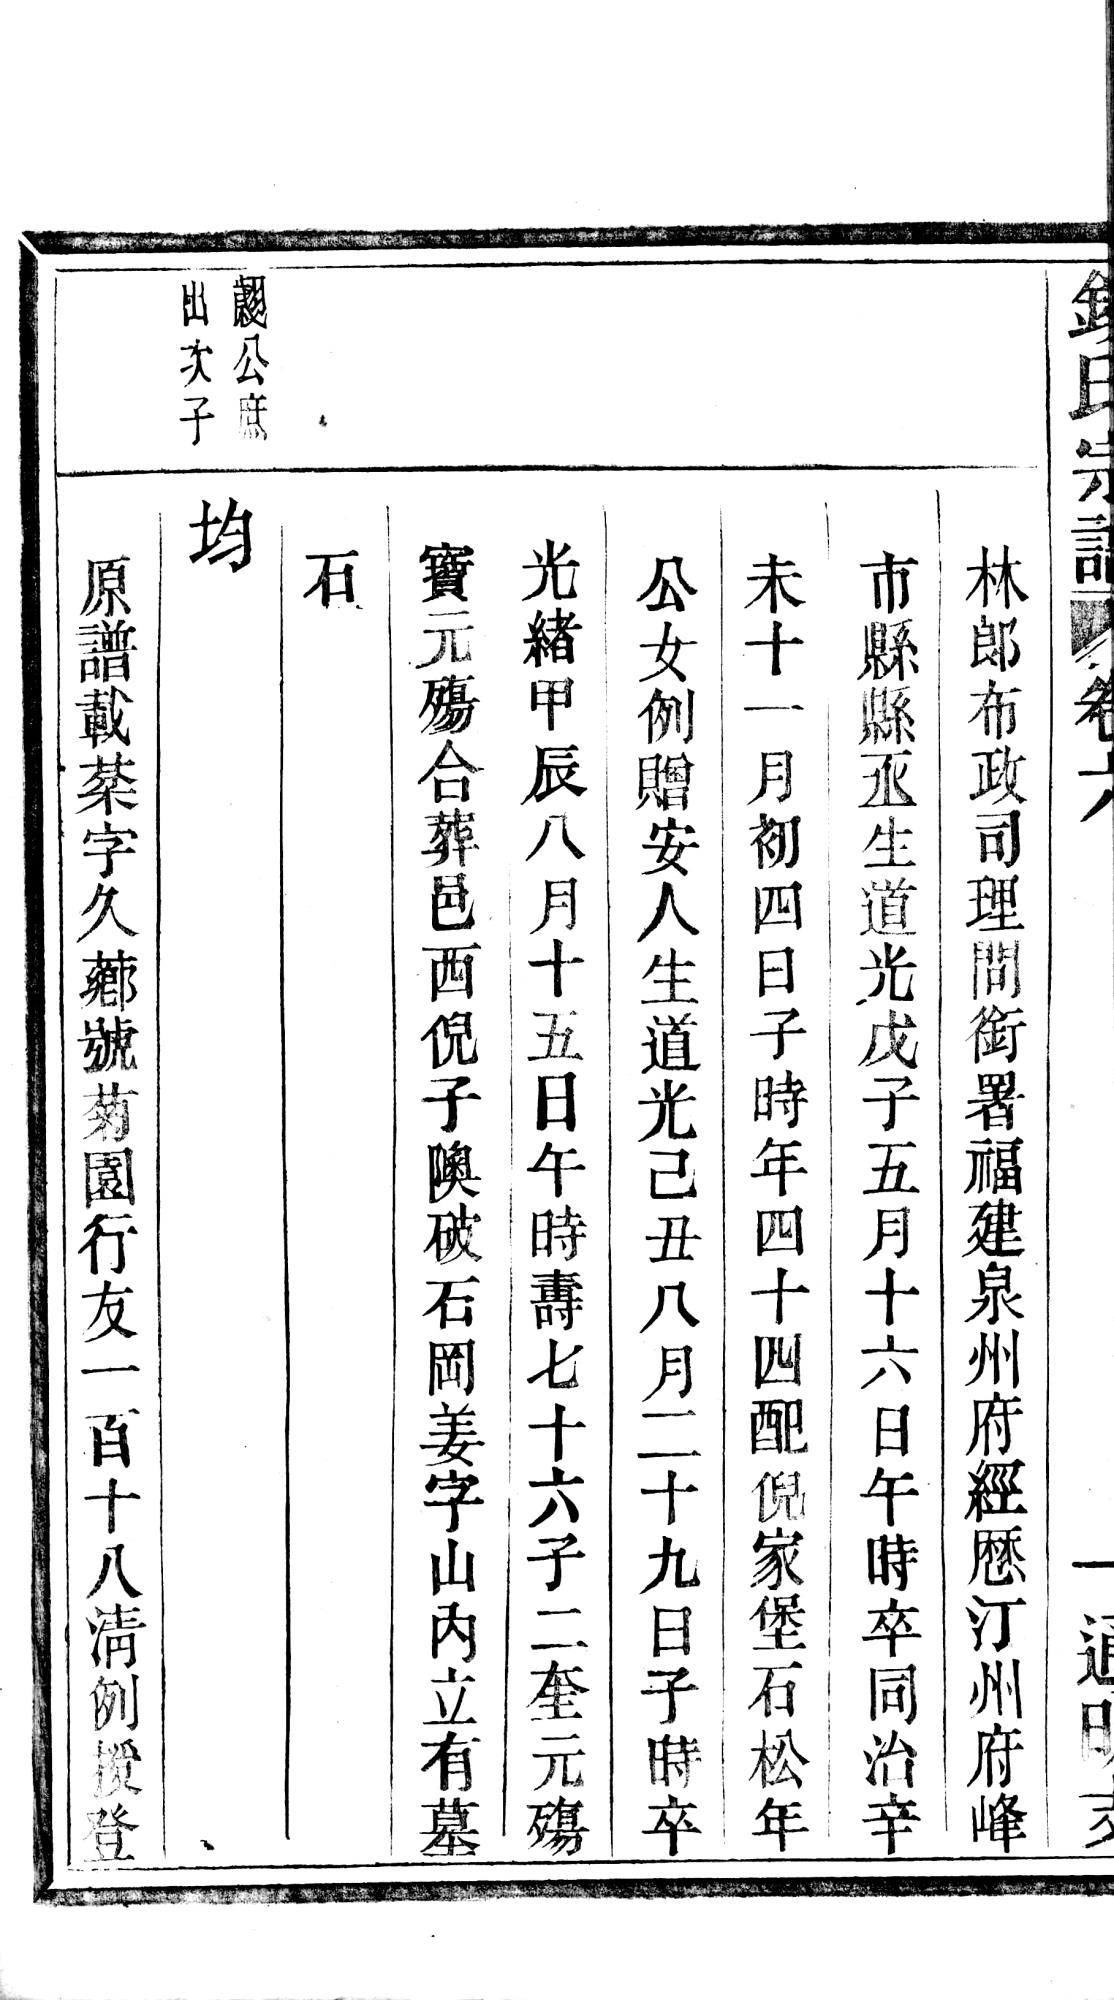 氏宗譜 卷六 一 通明支
林郎布政司理問銜署福建泉州府經歷汀州府峰
市縣縣丞生道光戊子五月十六日午時卒同治辛
未十一月初四日子時年四十四配倪家堡石松年
公女例贈安人生道光己丑八月二十九日子時卒
光緒甲辰八月十五日午時壽七十六子二奎元殤
寶元殤合葬邑西倪子隩破石岡姜字山內立有墓
石
公庶
出次子
均
原譜載棻字久薌號菊園行友一百十八清例授登